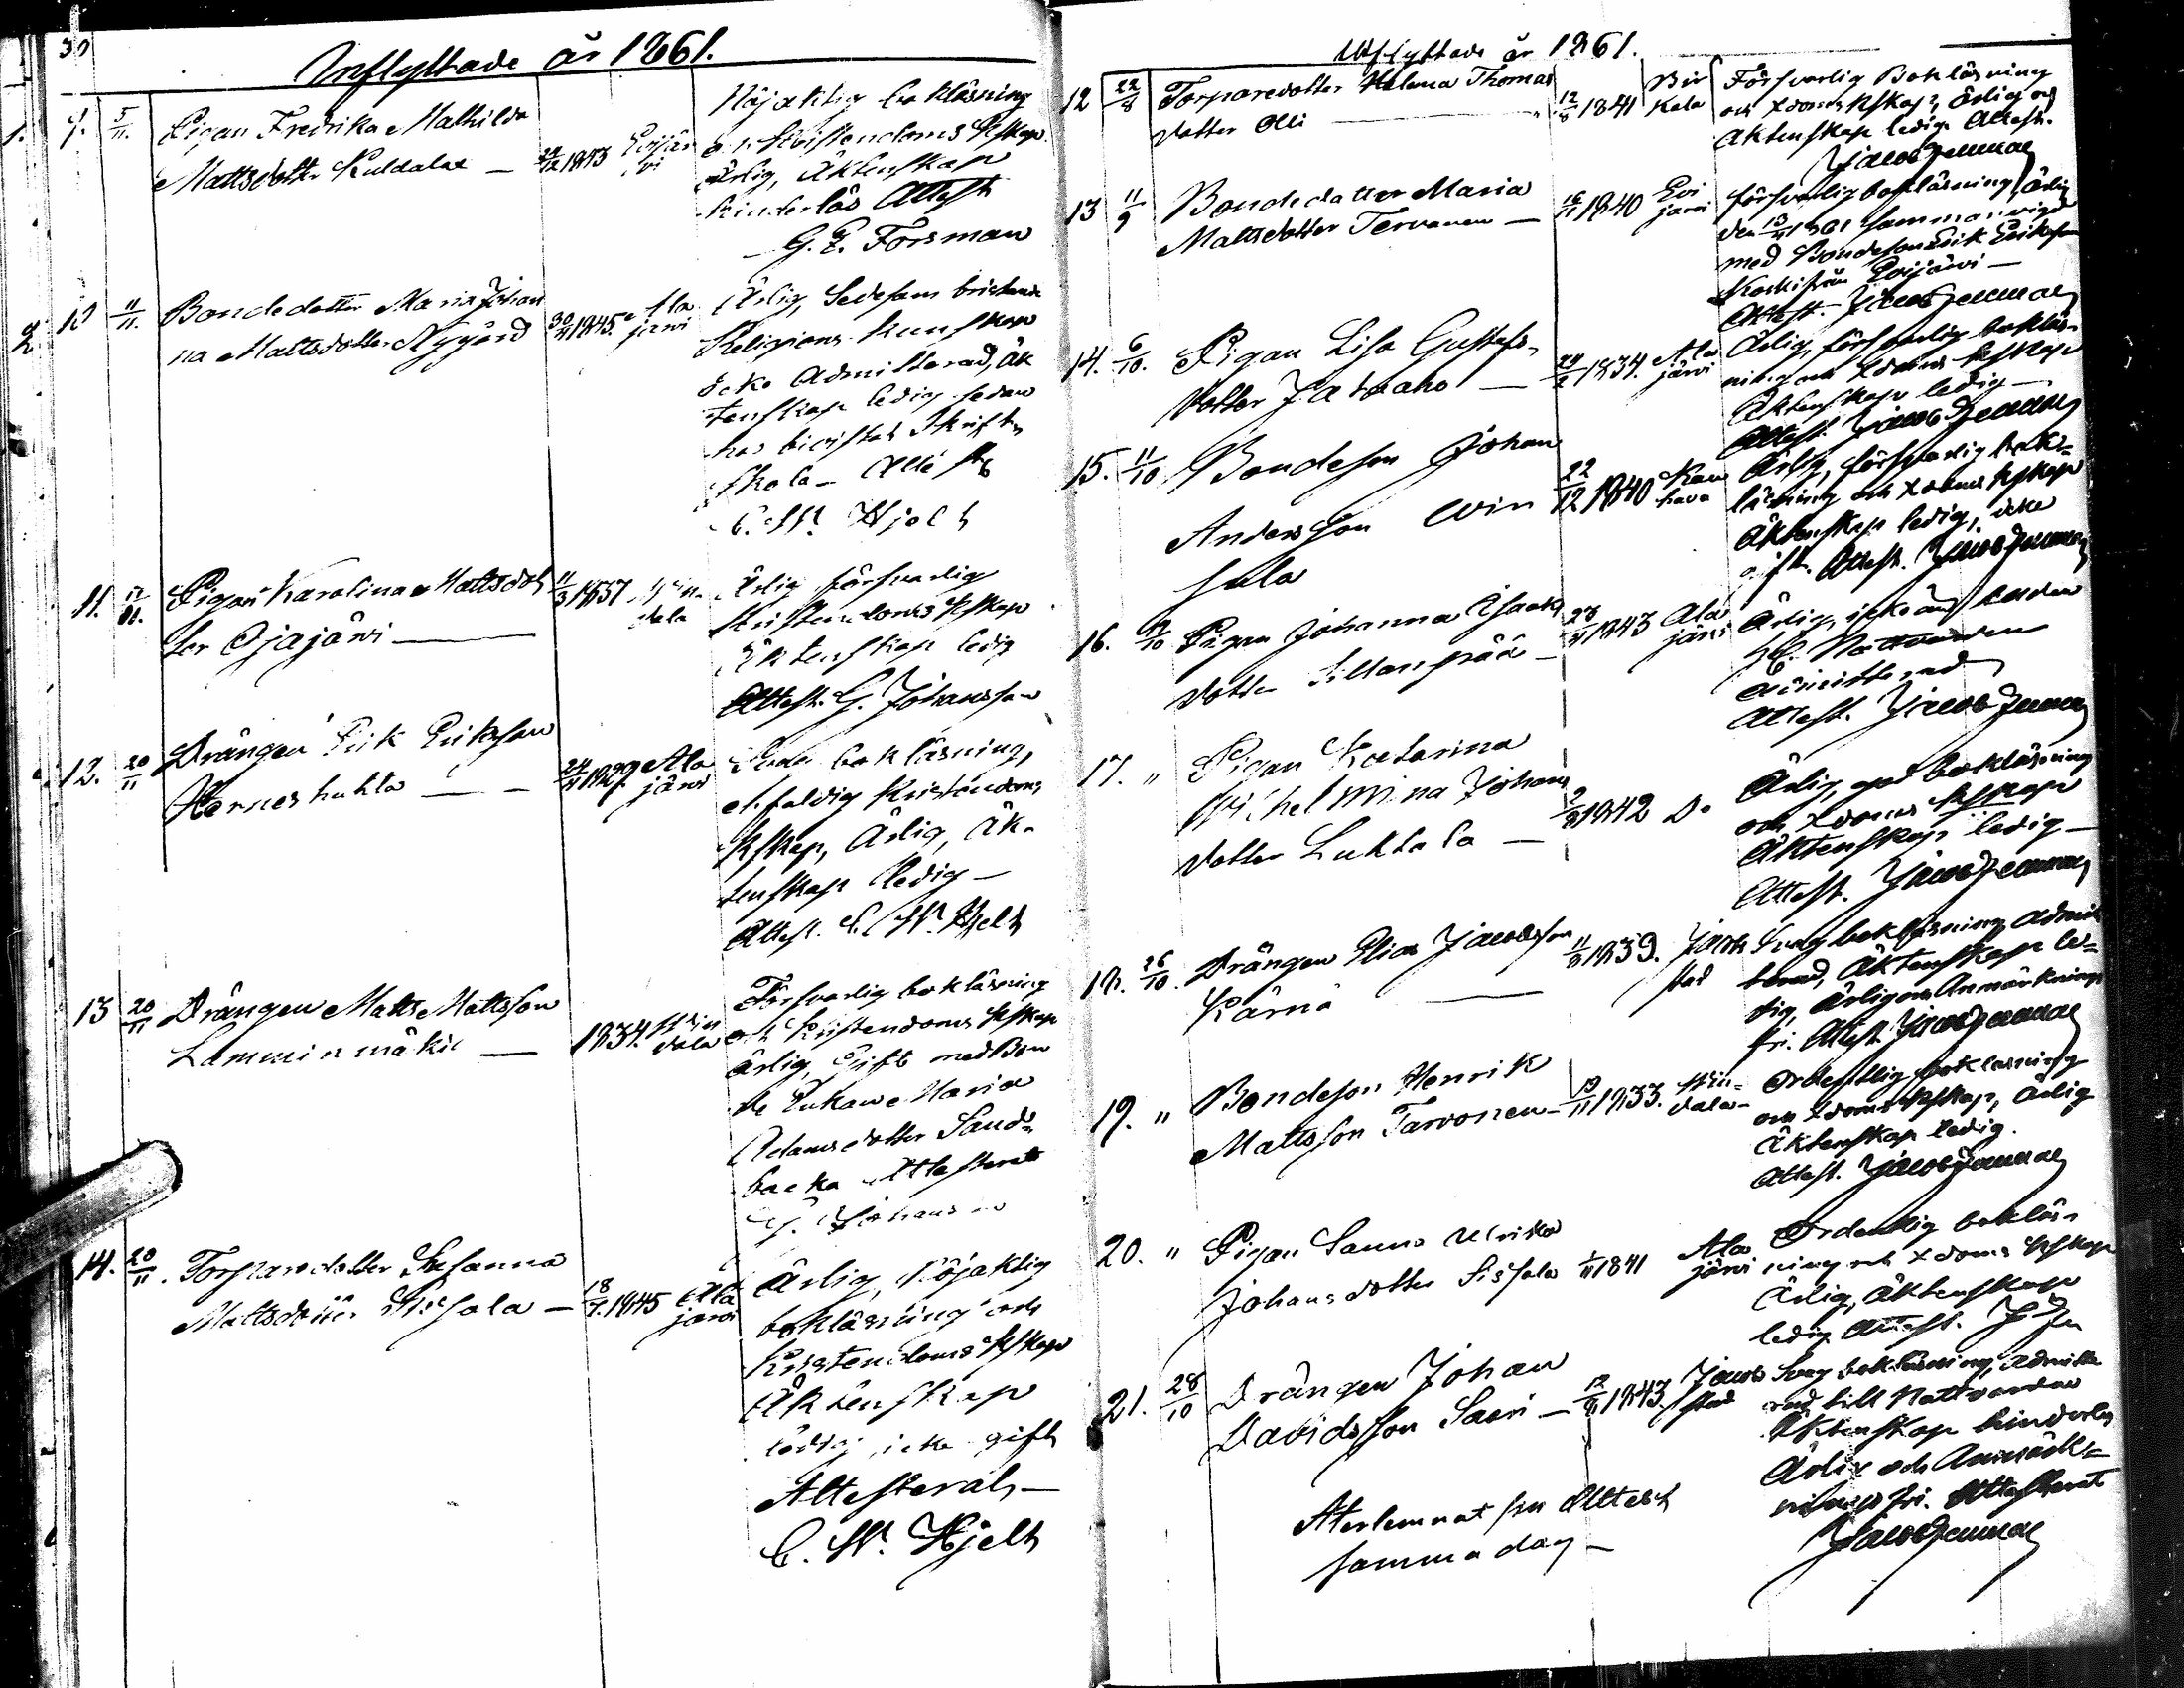 30
Inflyttade år 1861.
9. 5/11. Pigan Fredrika Mathilda
Mattsdotter Kuldalax — 1843 Evijär
vi
Nöjaktig bokläsning
och Kristendoms kskap
Ärlig, Äktenskap
hinderlös Attest
G. E. Forsman
10 11/11. Bondedotter Maria Johan
na Mattsdotter Nygård 30/11 1845. Ala
järvi
Ärlig, Sedesam bristande
Religions kunskap
icke admitterad, äk
tenskap ledig sedan
har bevistat Skrift
skola — Attest
C. W. Hjelt
11. 17/11. Pigan Karolina Mattsdot
ter Ojajärvi — 11/3 1837 Win
dala
Ärlig försvarlig
Kristendoms kskap
Äktenskap ledig
Attest. G. Johansson
12. 20/11 Drängen Erik Eriksson
Herneshuhta — 24/11 1829 Ala
järvi
bokläsning,
enfaldig Kristendoms
kskap, Ärlig, Äk-
tenskap ledig —
Attest. C. W. Hjelt
13 20/11 Drängen Matts Mattsson
Lamminmäki — 1834. Win
dala
Försvarlig bokläsning
och Kristendoms kskap
ärlig, Gift med Bon
de Enkan Maria
Adamsdotter Sand-
backa Attesterat
G. Johansson
14. 20/11. Torparedotter Susanna
Mattsdotter Sissala — 18/7. 1845 Ala
järvi
Ärlig, Nöjaktig
bokläsning och
Kristendoms kskap
Äktenskap
ledig, icke gift
Attesterat, —
C. W. Hjelt
Utflyttade år 1861.
12 22/8 Torparedotter Helena Thomas
dotter Olli — 12/8 1841 Bir
kala
Försvarlig Bokläsning
och Xdoms kskap, ärlig och
Äktenskap ledig Attest.
13 11/9 Bondedotter Maria
Mattsdotter Tervanen — 16/11 1840 Evi
järvi
försvarlig bokläsning, ärlig
den 1861 Sammanvigd
med Bondeson Erik Eriksson
Koski från Evijärvi —
Attest.
14. 6/10. Pigan Lisa Gustafs-
dotter Jatkaho — 1834. Ala
järvi
Ärlig, försvarlig bokläs-
ning och Xdoms kskap
Äktenskap ledig —
Attest.
15. 11/10 Bondeson Johan
Andersson Win
sala
22/12 1840 Kau
hava
Ärlig, försvarlig bok-
läsning och Xdoms kskap
Äktenskap ledig, icke
gift. Attest.
16. Pigan Johanna Isaaks
dotter Sillanpää — 1843 Ala
järvi
Ärlig, icke ännu
H. H. Nattvarden
admitterad
Attest.
17. " Pigan Katarina
Wilhelmina Johans
dotter Luktala — 1842 Do
Ärlig, god bokläsning
och Xdoms kskap
Äktenskap ledig —
Attest.
18. 26/10. Drängen Elias Jacobsson
Kärnä — 1839. Jacob
stad
Svag bokläsning admit
terad, Äktenskap le-
dig, Ärlig och Anmärknings
fri. Attest.
19. " Bondeson Henrik
Mattsson Tarvonen — 1833. Win-
dala —
Ordentlig bokläsning
och Xdoms kskap, Ärlig
Äktenskap ledig.
Attest.
20. " Pigan Sanna Ulrika
Johansdotter Sissala 1/11 1841 Ala
järvi
Ordentlig bokläs-
ning och Xdoms kskap
Ärlig, Äktenskap
ledig Attest.
21. 28/10 Drängen Johan
Davidsson Savi — 1843. Jacob
stad
Svag bokläsning, admitte
rad till Nattvarden
Äktenskap hinderlös
Ärlig och Anmärk-
nings fri. Attesterat
Återlemnat sin Attest
samma dag —